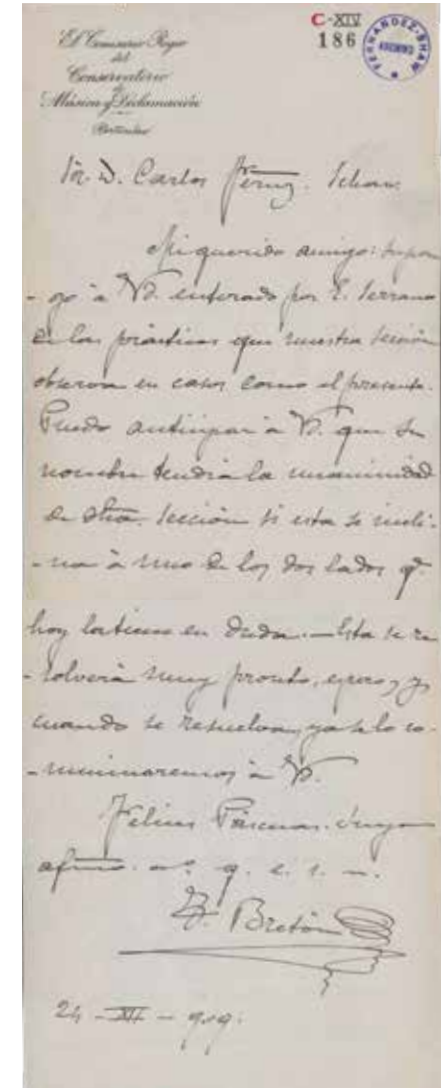 C-XIV
186
FERNANDEZ-SHAW
ARCHIVO
El Comisario Regio
del
Conservatorio
de
Música y Declamación
Particular
Sr. D. Carlos Fernz. Schaw
Mi querido amigo: supon
-go à Vd. enterado por E. Serrano
de las prácticas que nuestra Sección
observa en casos como el presente.
Puedo anticipar à Vd. que su
nombre tendrá la unanimidad
de otra. Sección si esta se incli-
-na à uno de los dos lados qe.
hoy la tienen en duda. — Esta se re
-solverá muy pronto, espero, y
cuando se resuelva, ya se lo co-
-municaremos à Vd.
Felices Pascuas. Suyo
afmo. a. q. e. s. m.
T. Bretón
24 - XII - 909.